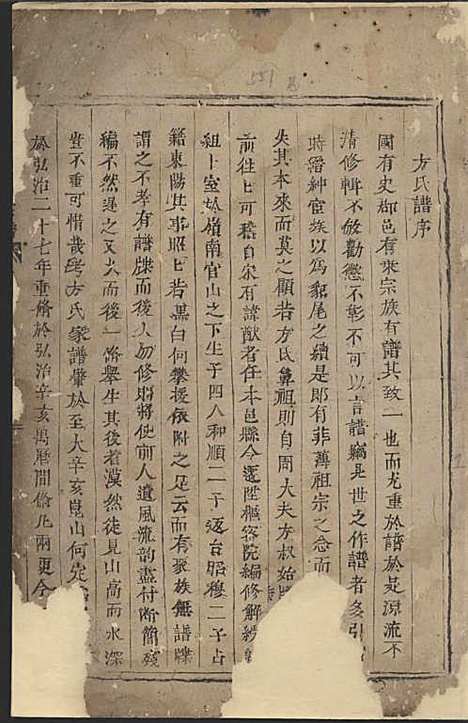 方氏譜序
國有史郡邑有乘宗族有譜其致一也而尤重於譜於是源流不
清修輯不敘勸懲不彰不可以言譜竊見世之作譜者多引
時縉紳宦族以為貂尾之續是即有非薄祖宗之念而
失其本來而莫之顧若方氏鼻祖則自周大夫方叔始
前往上可稽自宋有諱猷者任本邑縣令遷陞樞密院編修解綬
組卜室於嶺南官山之下生子四人和順二子返台昭穆二子占
籍東陽其事昭上若黑白何攀援依附之足云而有聚族無譜牒
謂之不孝有譜牒而後人勿修則將使前人遺風流韵盡付斷簡殘
編不然遲之又久而後一脩舉生其後者漠然徒見山高而水深
豈不重可惜哉方氏家譜肇於至大辛亥崑山何
於弘治二十七年重脩於弘治辛亥萬曆間脩凡兩更今
551